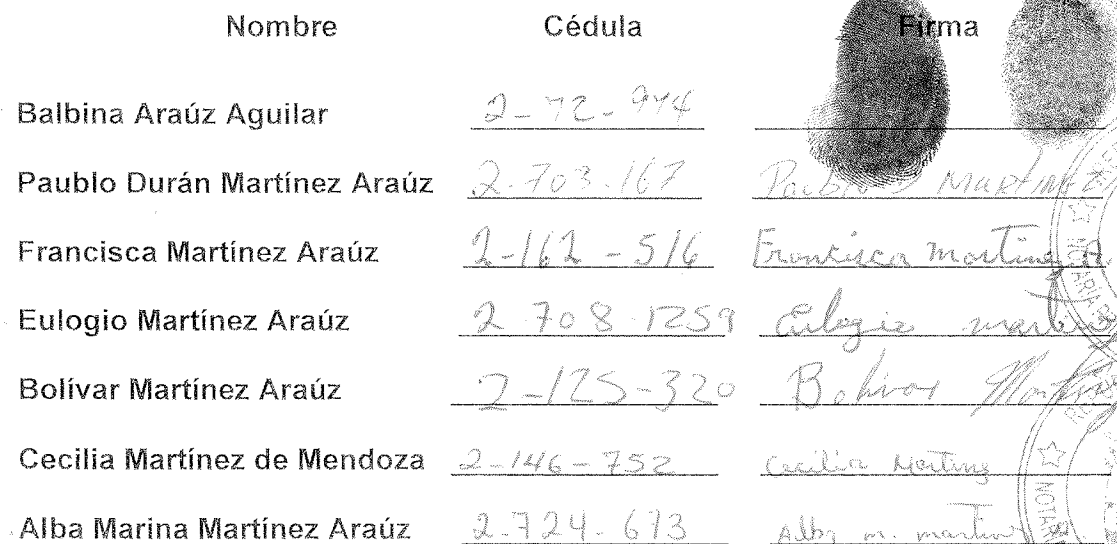 Nombre Cédula Firma
Balbina Araúz Aguilar 2-72-974
Paublo Durán Martínez Araúz 2-703-167 Paublo D Martinez
Francisca Martínez Araúz 2-162-516 Francisca Martinez A.
Eulogio Martínez Araúz 2 708 1259 Eulogio martinez
Bolívar Martínez Araúz 2-125-320 Bolivar Martinez
Cecilia Martínez de Mendoza 2-146-752 Cecilia Martinez
Alba Marina Martínez Araúz 2-724-673 Alba m. martinez
NOTARIA
NOTARI